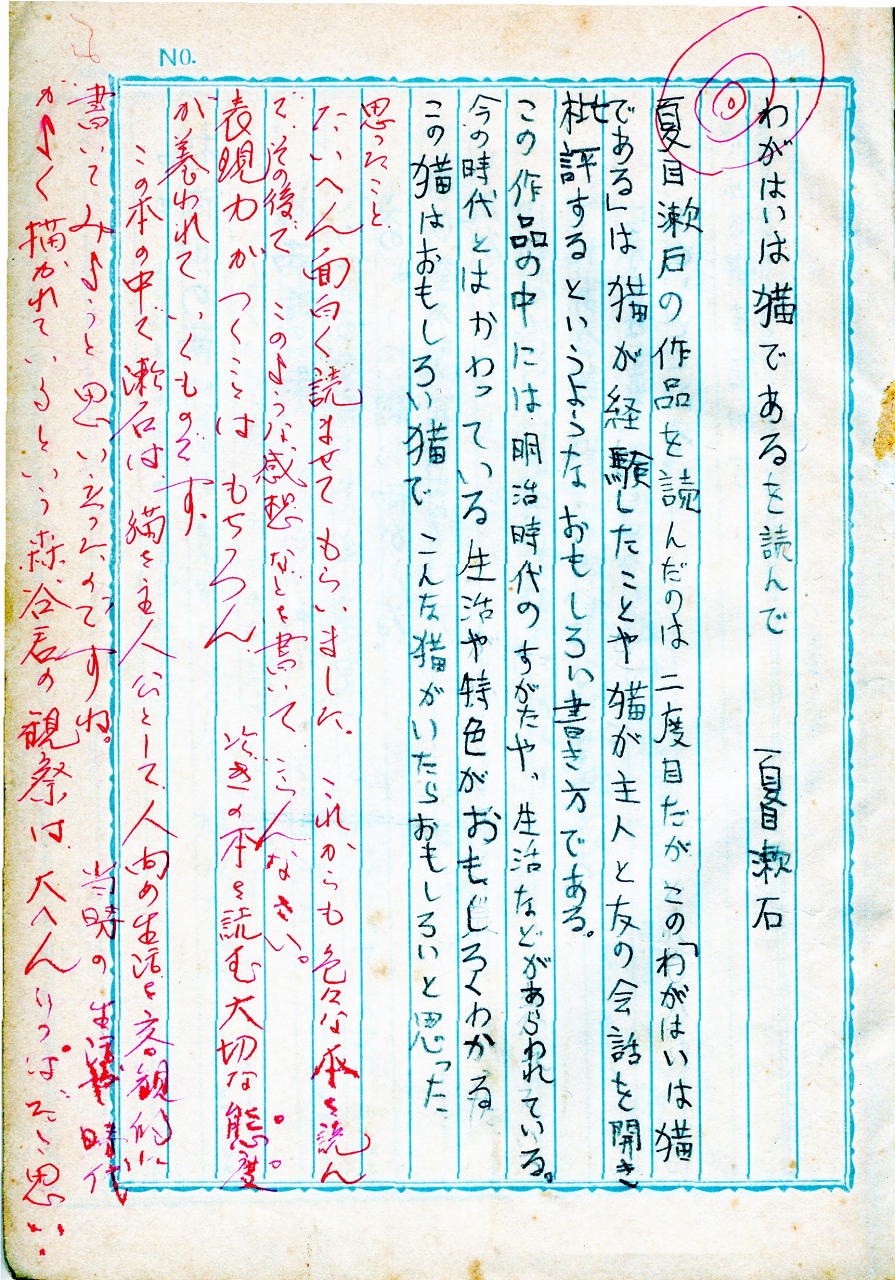 NO.
わがはいは猫であるを読んで
夏目漱石
夏目漱石の作品を読んだのは二度目だがこの「わがはいは猫
である」は猫が経験したことや猫が主人と友の会話を開き
批評するというようなおもしろい書き方である。
この作品の中には明治時代のすがたや、生活などがあらわれている。
今の時代とはかわっている生活や特色がおもしろくわかる
この猫はおもしろい猫でこんな猫がいたらおもしろいと思った
思ったこと
たいへん面白く読ませてもらいました。これからも色々な本を読ん
で、その後で、このような感想などを書いてごらんなさい。
表現力がつくことはもちろん、次ぎの本を読む大切な態度
が養われていくものです、
この本の中で漱石は、猫を主人公として、人間の生活を客観的に
書いてみようと思い立ったのですね。当時の生活時代
がよく描かれているという森谷君の観察は、大へんりっぱだと思い